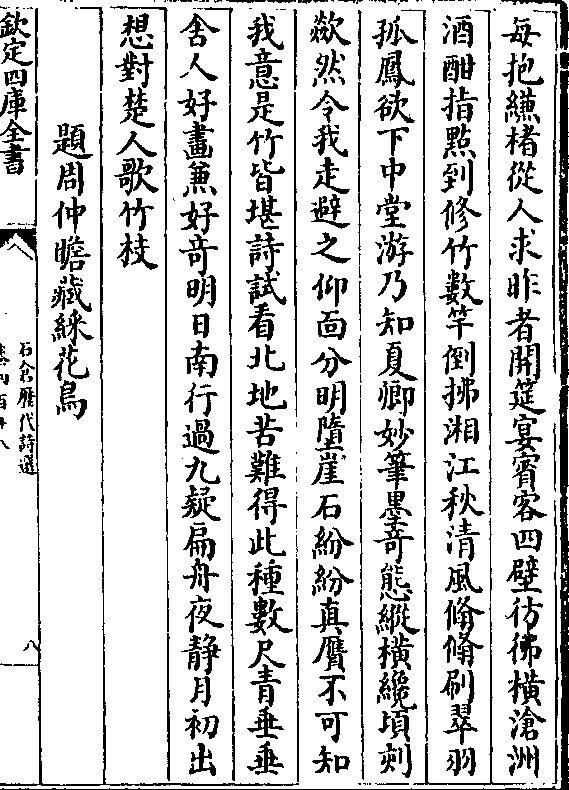 每抱縑楮從人求昨者開筵宴賓客四壁彷彿橫滄洲
酒酣指點到修竹數竿倒拂湘江秋清風翛翛刷翠羽
孤鳳欲下中堂游乃知夏卿妙筆墨竒態縱橫纔頃刻
歘然令我走避之仰面分明墮崖石紛紛真贗不可知
我意是竹皆堪詩試看北地苦難得此種數尺青垂垂
舍人好畫兼好竒明日南行過九疑扁舟夜静月初出
想對楚人歌竹枝
題周仲瞻藏綵花鳥
欽定四庫全書
石倉歷代詩選
八